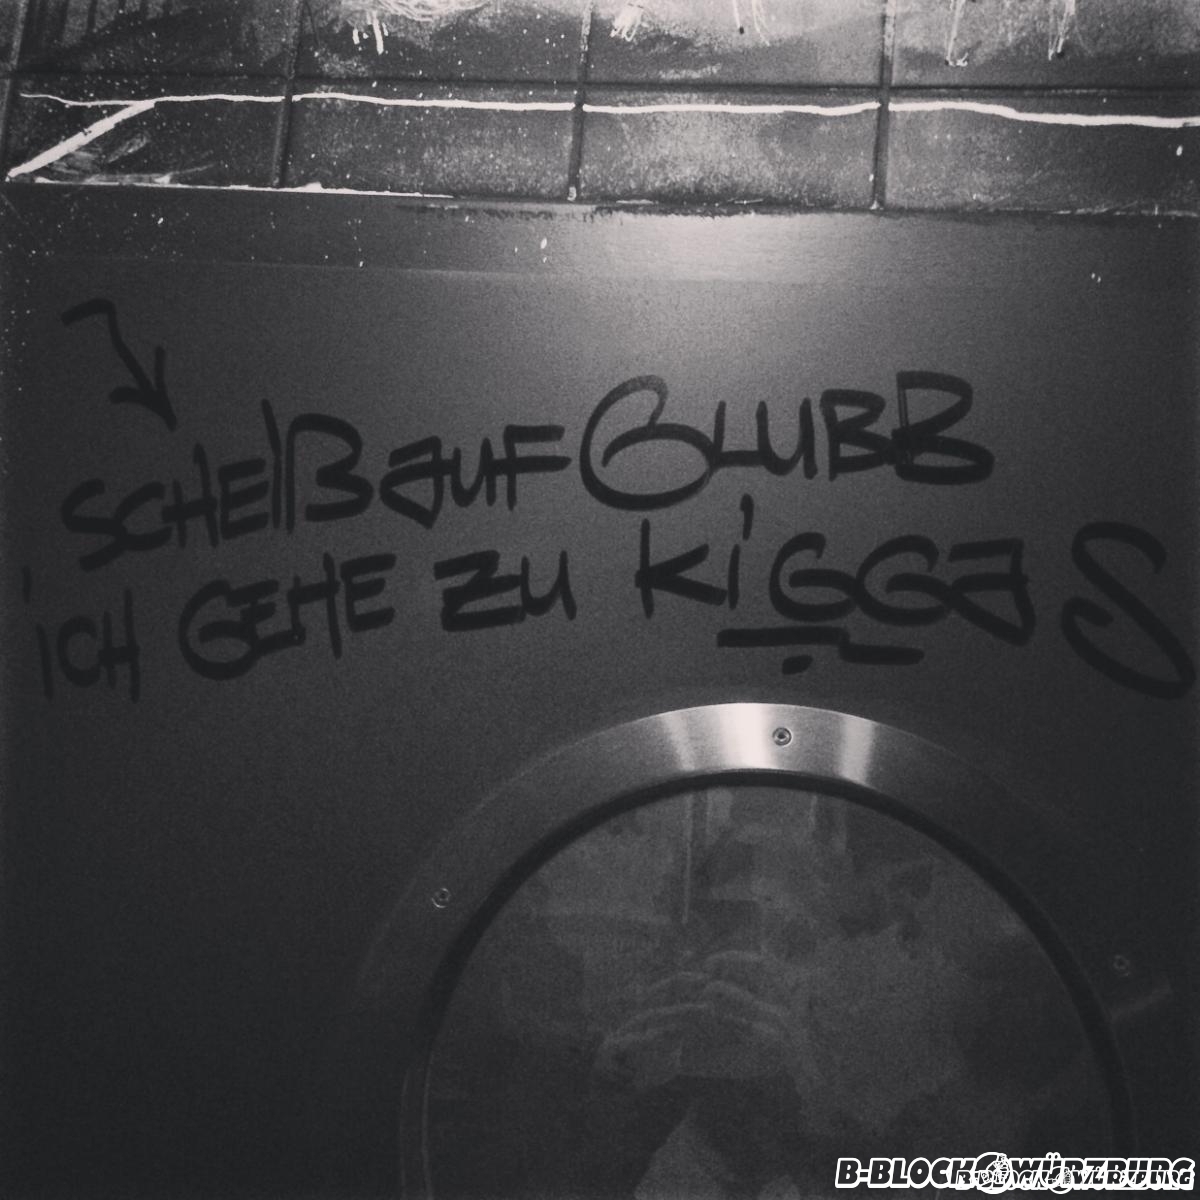 SCHEIß AUF GLUBB
iCH GEHE ZU KiGGAS
B-BLOCK WÜRZBURG